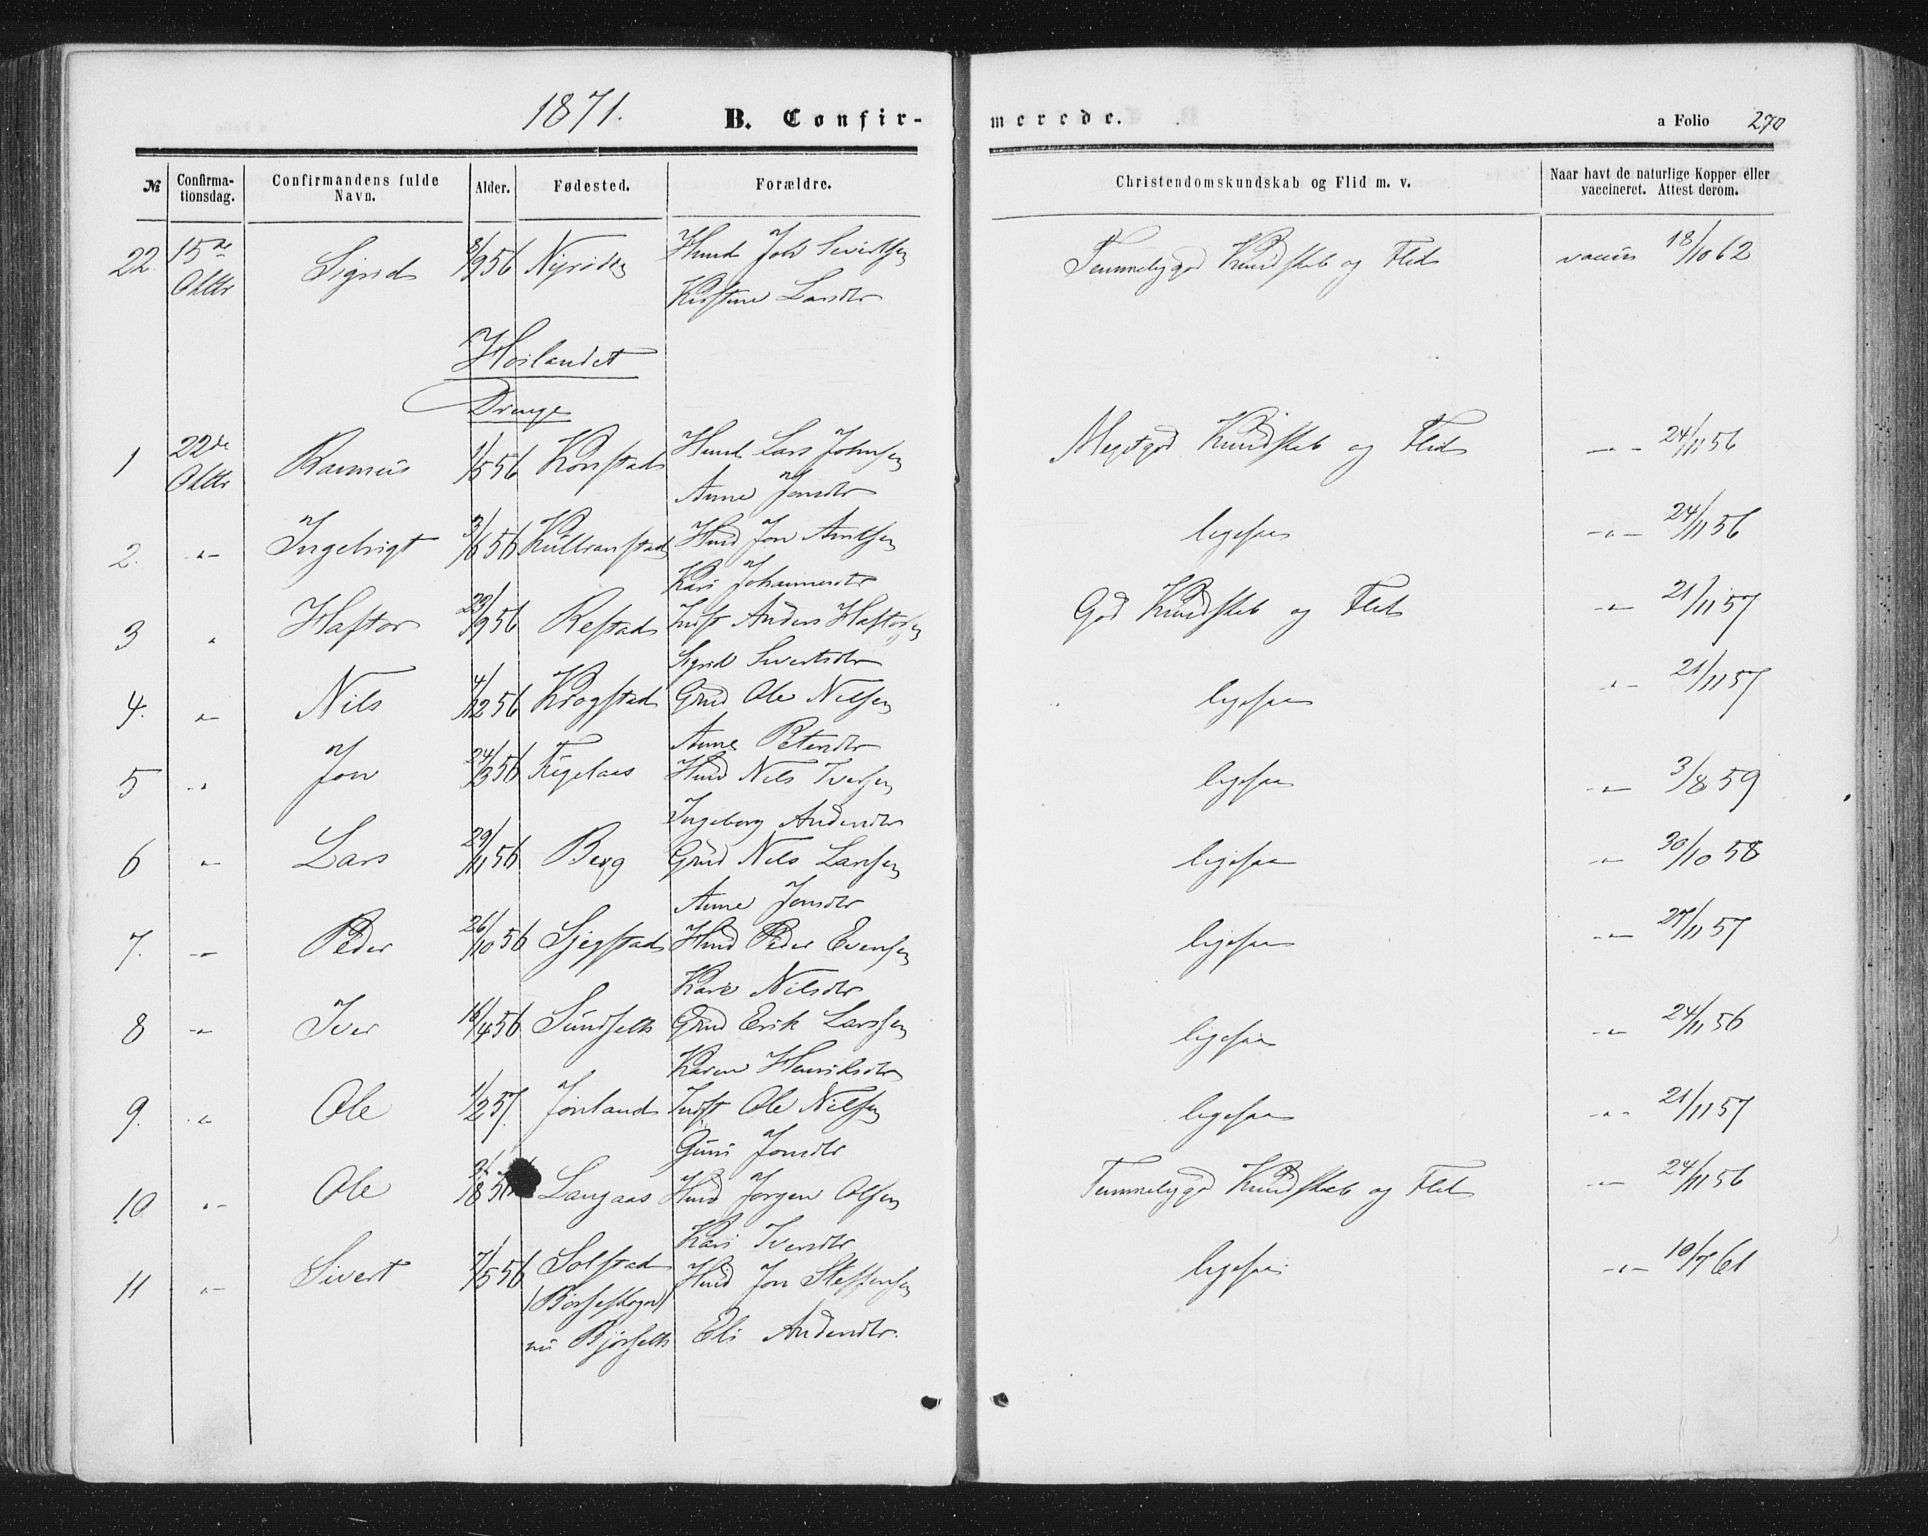 1871.
B. Confirmerede.
a Folio 270
№ Confirmationsdag. Confirmandens fulde Navn. Alder. Fødested. Forældre. Christendomskundskab og Flid m. v. Naar havt de naturlige Kopper eller vaccineret. Attest derom.
22. 15de Oktbr Sigrid 8/9 56 Nyrøden Husmd Joh Sivertsen Temmelig god Kundskab og Flid vaccin 18/10 62
Kirstine Larsdtr
Høilandet
Drenge
1 22de Oktbr Rasmus 1/5 56 Korstad Husmd Lars Johnsen Meget god Kundskab og Flid -"- 24/11 56
Anne Jonsdtr
2. -"- Ingebrigt 3/6 56 Husmd Jon Arntsen ligesaa -"- 24/11 56
Kari Johannesdtr
3 " Haftor 29/9 56 Refstad Indst Anders Haftorsen God Kundskab og Flid -"- 21/11 57
Sigrid Sivertsdtr
4. -"- Nils 4/12 56 Krogstad Grmd Ole Nilsen ligesaa -"- 21/11 57
Anne Petersdtr
5 -"- Jon 24/3 56 Fugelaas Husmd Nils Iversen ligesaa -"- 3/8 59
Ingeborg Andersdtr
6 -"- Lars 29/11 56 Berg Grmd Nils Larssen ligesaa -"- 30/10 58
Anne Jonsdtr
7. -"- Peder 26/10 56 Sjegstad Husmd Peder Evensen ligesaa -"- 27/11 57
Kari Nilsdtr
8 -"- Iver 16/4 56 Sundseth Grmd Erik Larssen ligesaa -"- 24/11 56
Karen Henriksdtr
9. -"- Ole 1/2 57. Jønland Indst Ole Nilsen ligesaa -"- 21/11 57
Guri Jonsdtr
10 -"- Ole Langaas Husmd Jørgen Olsen Temmelig god Kundskab og Flid -"- 24/11 56
Kari Iversdtr
11 -"- Sivert 7/5 56 Solstad Husmd Jon Steffensen ligesaa -"- 10/7 61
(Børseskogn)
nu Bjørseth Eli Andersdtr.